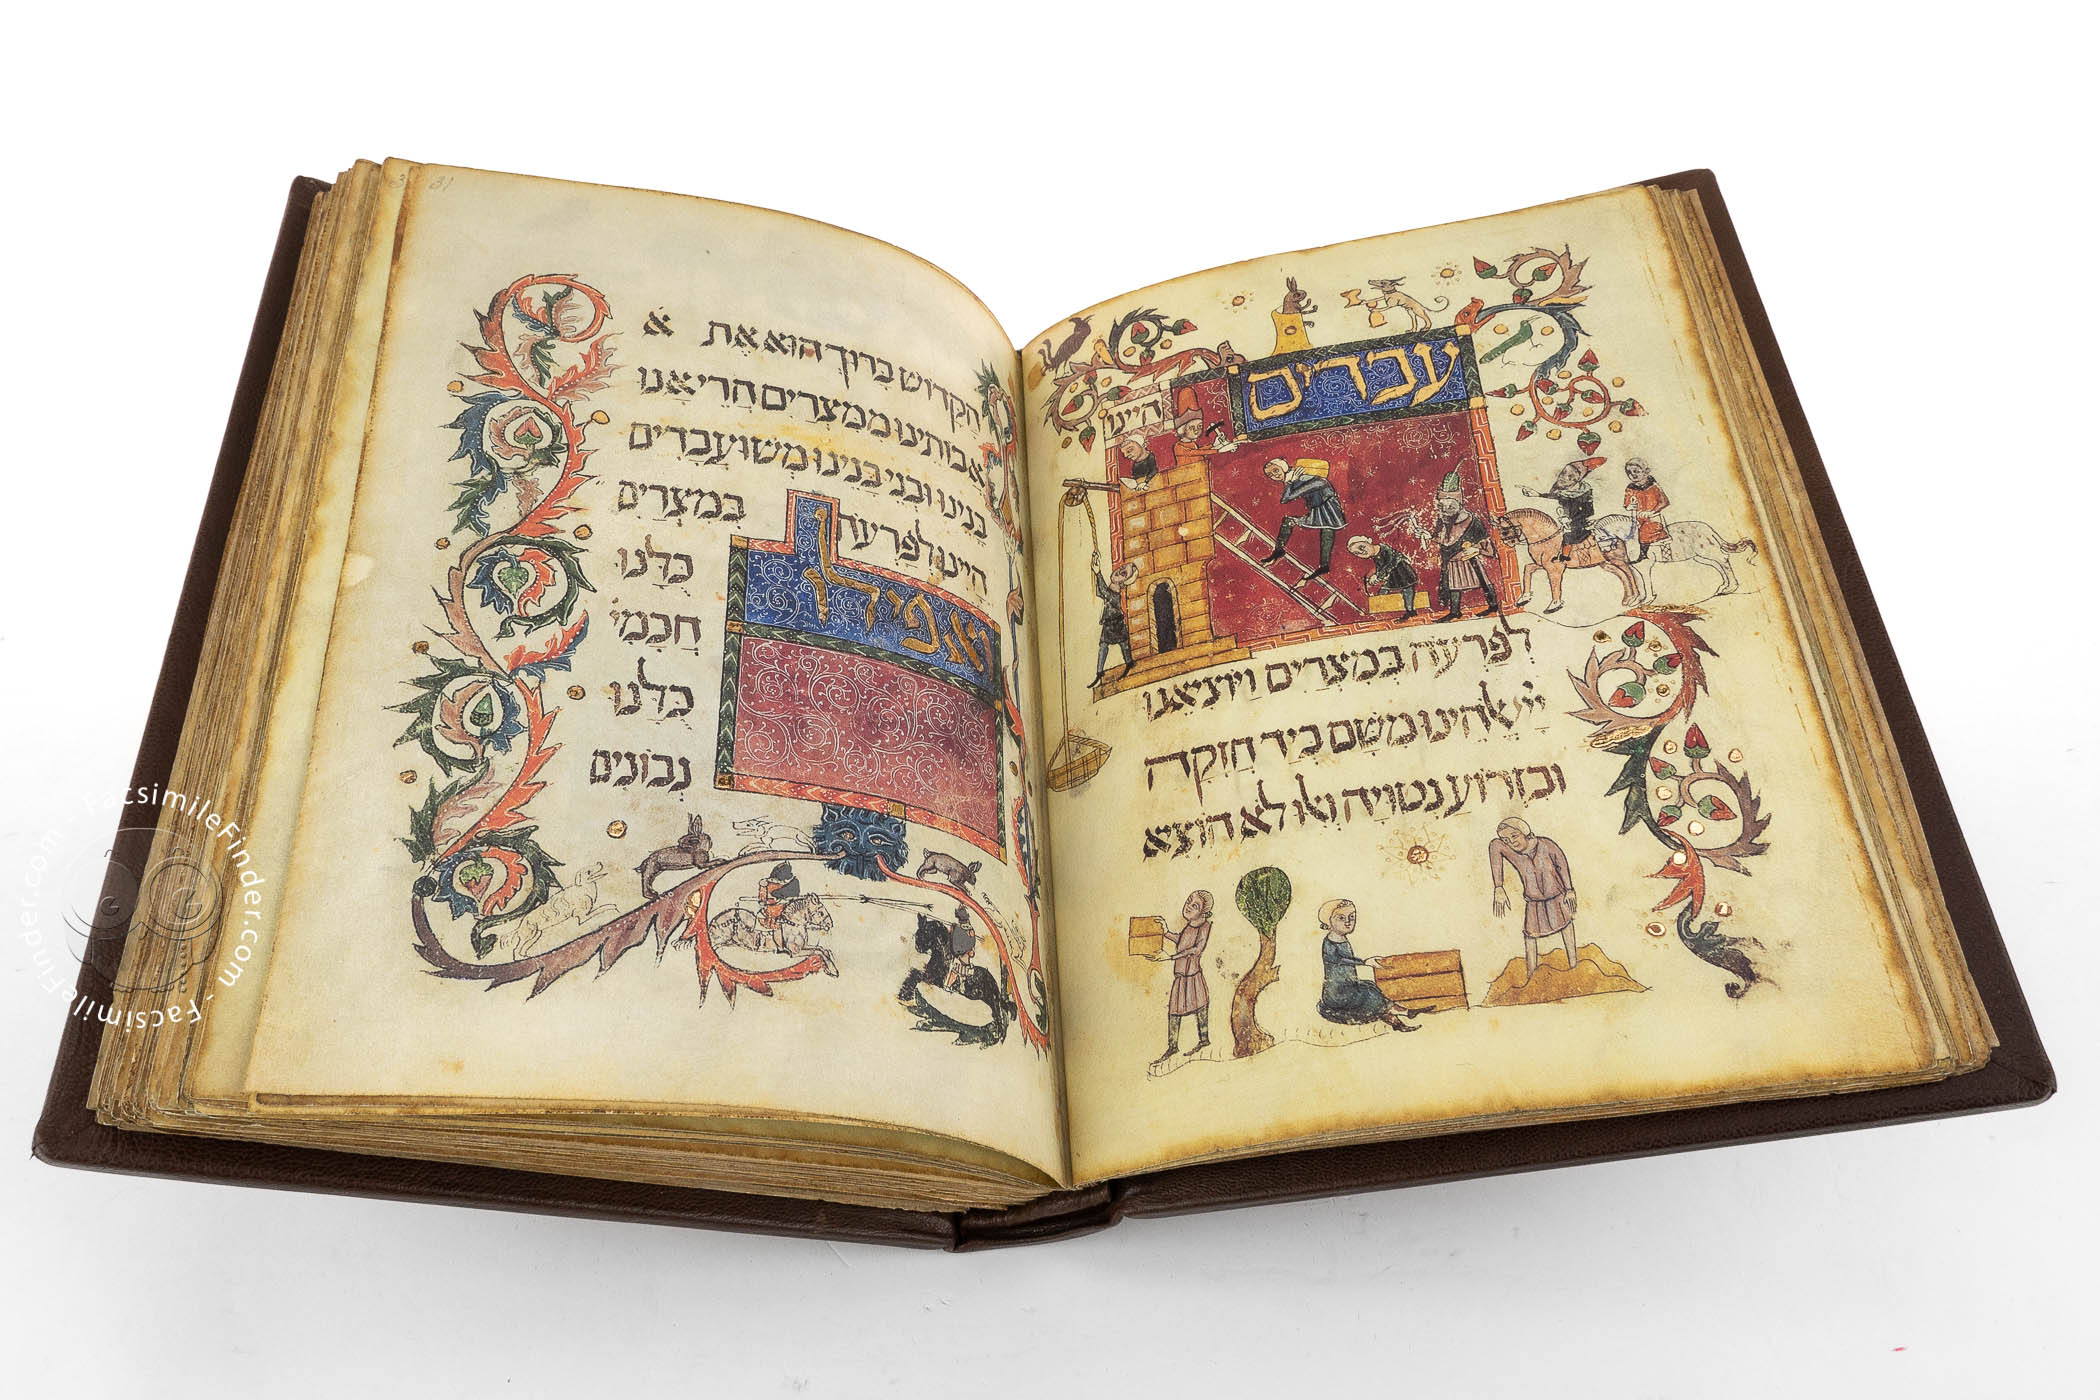 היינו עבדים
לפרעה במצרים ויוציאנו
יי אלהינו משם ביד חזקה
ובזרוע נטויה ואלו לא הוציא
31
הקדוש ברוך הוא את א
אבותינו ממצרים הרי אנו
בנינו ובני בנינו משועבדים
היינו לפרעה במצרים
ואפילו
כלנו
חכמי
כלנו
נבונים
FacsimileFinder.com - FacsimileFinder.com -